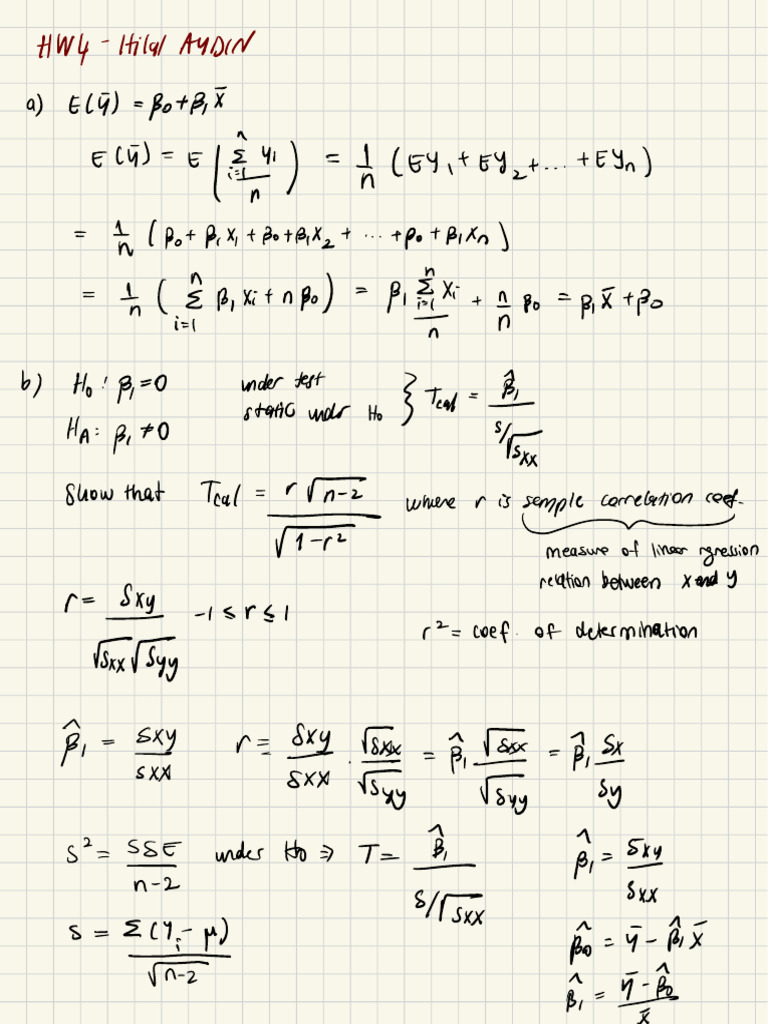 HW4 - Hilal AYDIN
a) E(ȳ) = β₀ + β₁ x̄
E(ȳ) = E( (Σ_{i=1}^{n} yᵢ) / n ) = 1/n (EY₁ + EY₂ + ... + EYₙ)
= 1/n (β₀ + β₁x₁ + β₀ + β₁x₂ + ... + β₀ + β₁xₙ)
= 1/n ( Σ_{i=1}^{n} β₁xᵢ + nβ₀ ) = β₁ (Σ_{i=1}^{n} xᵢ) / n + n/n β₀ = β₁x̄ + β₀
b) H₀: β₁ = 0 under test static under H₀ } T_cal = β̂₁ / (s/√Sxx)
H_A: β₁ ≠ 0
Show that T_cal = r√(n-2) / √(1-r²) where r is sample correlation coef.
measure of linear regression
relation between x and y
r = Sxy / (√Sxx √Syy) -1 ≤ r ≤ 1
r² = coef. of determination
β̂₁ = Sxy / Sxx r = Sxy / Sxx · √Sxx / √Syy = β̂₁ √Sxx / √Syy = β̂₁ Sx / Sy
S² = SSE / (n-2) under H₀ ⇒ T = β̂₁ / (S/√Sxx) β̂₁ = Sxy / Sxx
S = Σ(yᵢ - μ) / √(n-2) β̂₀ = ȳ - β̂₁ x̄
β̂₁ = (ȳ - β̂₀) / x̄